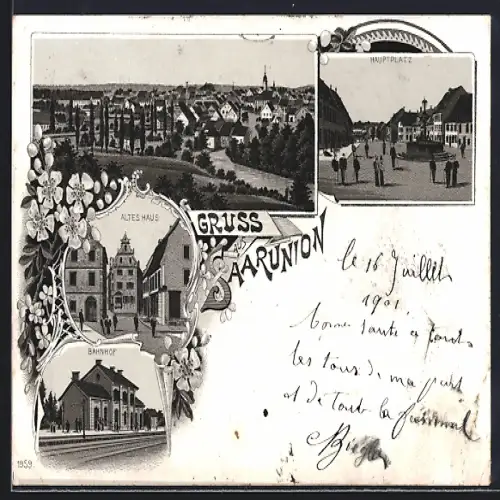 HAUPTPLATZ
GRUSS
AUS
SAARUNION
ALTES HAUS
BAHNHOF
1959
le 16 Juillet
1901.
Bonne santé à
les tous de ma part
et de toute la